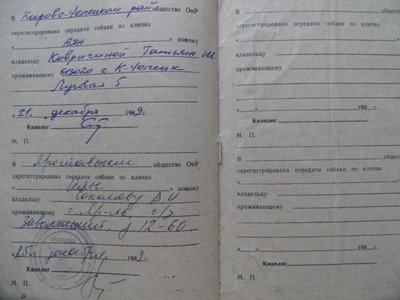 В Кирово-Чепецкой рай обществе ОиР
зарегистрирована передача собаки по кличке
Аян новому
владельцу Ковригиной Татьян
проживающему г. К-Чепецк
Луговая 5
„21„ декабря 1989г.
Кинолог
М. П.
В Ярославском обществе ОиР
зарегистрирована передача собаки по кличке
Аян новому
владельцу Соколову В И
проживающему г. Яр-ль,
д 12-60
„25„ декабря 1989г.
Кинолог
М. П.
20
В обществе ОиР
зарегистрирована передача собаки по кличке
новому
владельцу
проживающему
„ „ 198 г.
Кинолог
М. П.
В обществе ОиР
зарегистрирована передача собаки по кличке
новому
владельцу
проживающему
„ „ 198 г.
Кинолог
М. П.